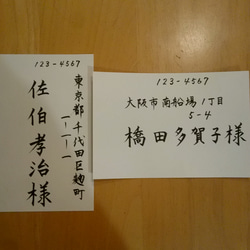 123-4567
東京都千代田区麹町
一-一-一
佐伯孝治様
123-4567
大阪市南船場1丁目
5-4
橋田多賀子様